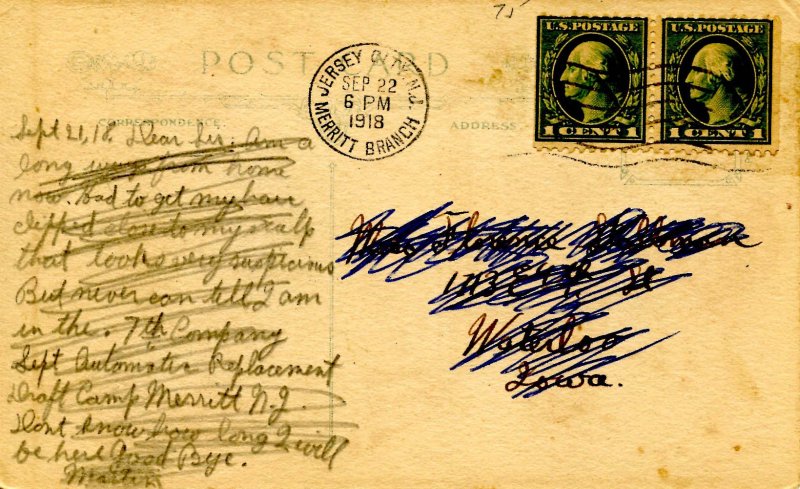 75
U.S. POSTAGE
U.S. POSTAGE
1 CENT 1
1 CENT 1
POST CARD
JERSEY CITY, N.J.
SEP 22
6 PM
1918
MERRITT BRANCH
CORRESPONDENCE
ADDRESS
Sept 21, 18. Dear Sir: Am a
long way from home
now. had to get my hair
clipped close to my scalp
that looks very suspicious
But never can tell I am
in the. 7th Company
Sept Automatic Replacement
Draft Camp Merritt N.J.
Dont know how long I will
be here Good Bye.
Martin
St
Waterloo
Iowa.